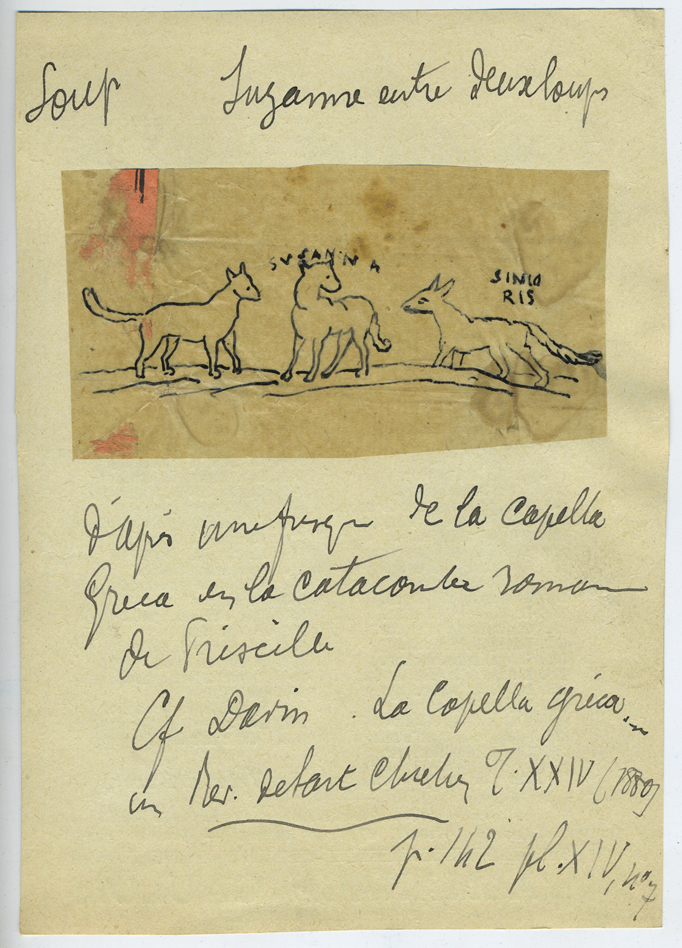 Loup
Suzanne entre deux loups
SUSANNA
SINIO
RIS
d'après une fresque de la capella
Greca en la catacombe romaine
de Priscille
Cf Davin. La Capella gréca
in Rev. de l'art Chrétien T. XXIV (1880)
p. 142 pl. XIV, no 7